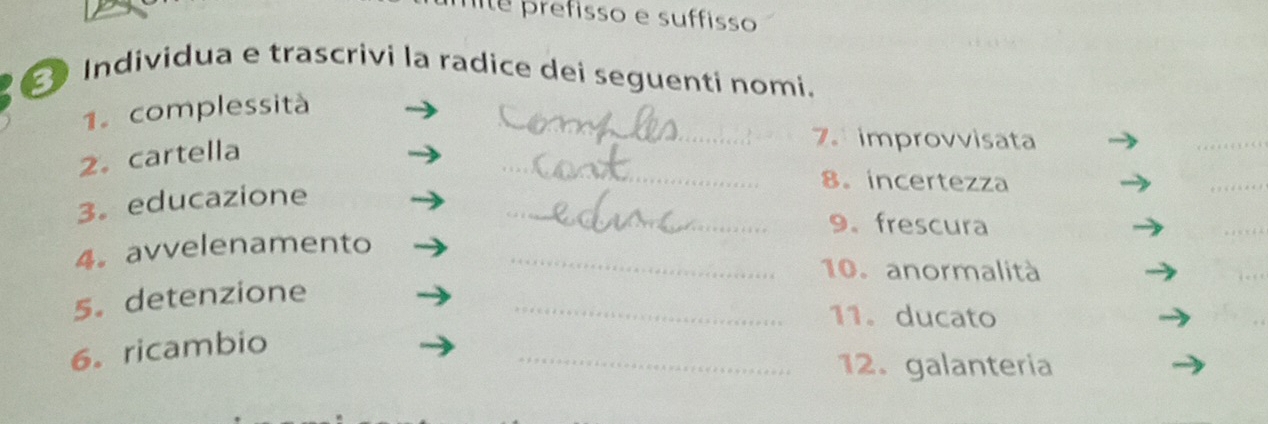 prefisso e suffisso
3 Individua e trascrivi la radice dei seguenti nomi.
1. complessità → comples
2. cartella → cart
3. educazione → educ
4. avvelenamento →
5. detenzione →
6. ricambio →
7. improvvisata →
8. incertezza →
9. frescura →
10. anormalità →
11. ducato →
12. galanteria →